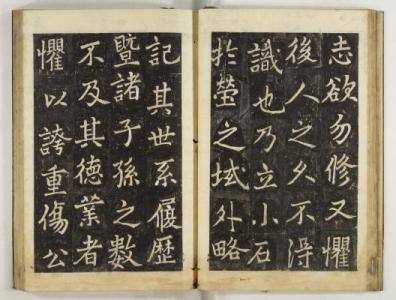 志欲勿修又懼
後人之久不淂
識也乃立小石
扵塋之域外略
記其世系履歴
暨諸子孫之數
不及其德業者
懼以誇重傷公